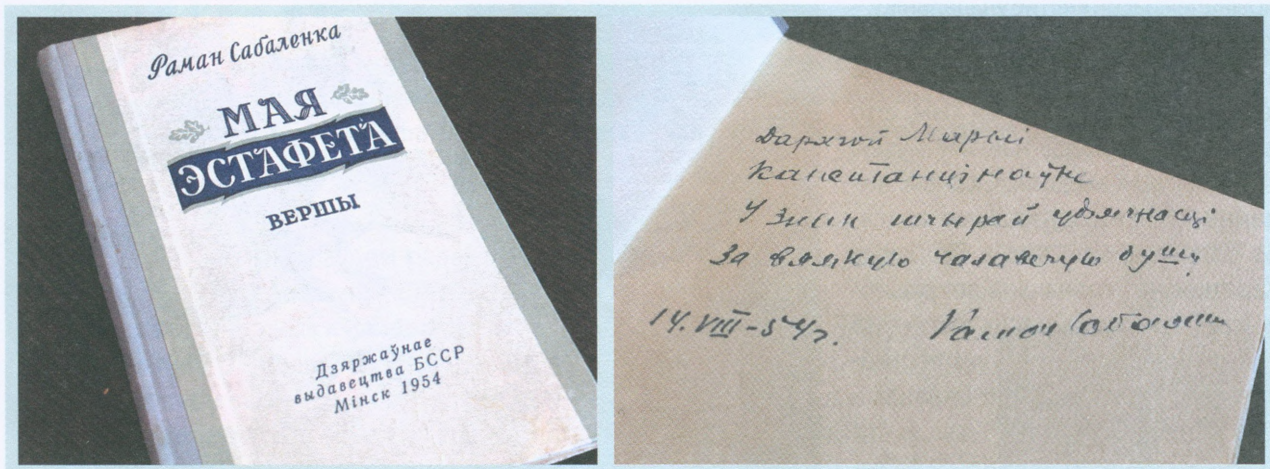 Раман Сабаленка
МАЯ
ЭСТАФЕТА
ВЕРШЫ
Дзяржаўнае
выдавецтва БССР
Мінск 1954
Дарагой Марыі
Канстанцінаўне
У знак шчырай удзячнасці
За вялікую чалавечую душу
14.VIII-54 г.
Раман Сабаленка